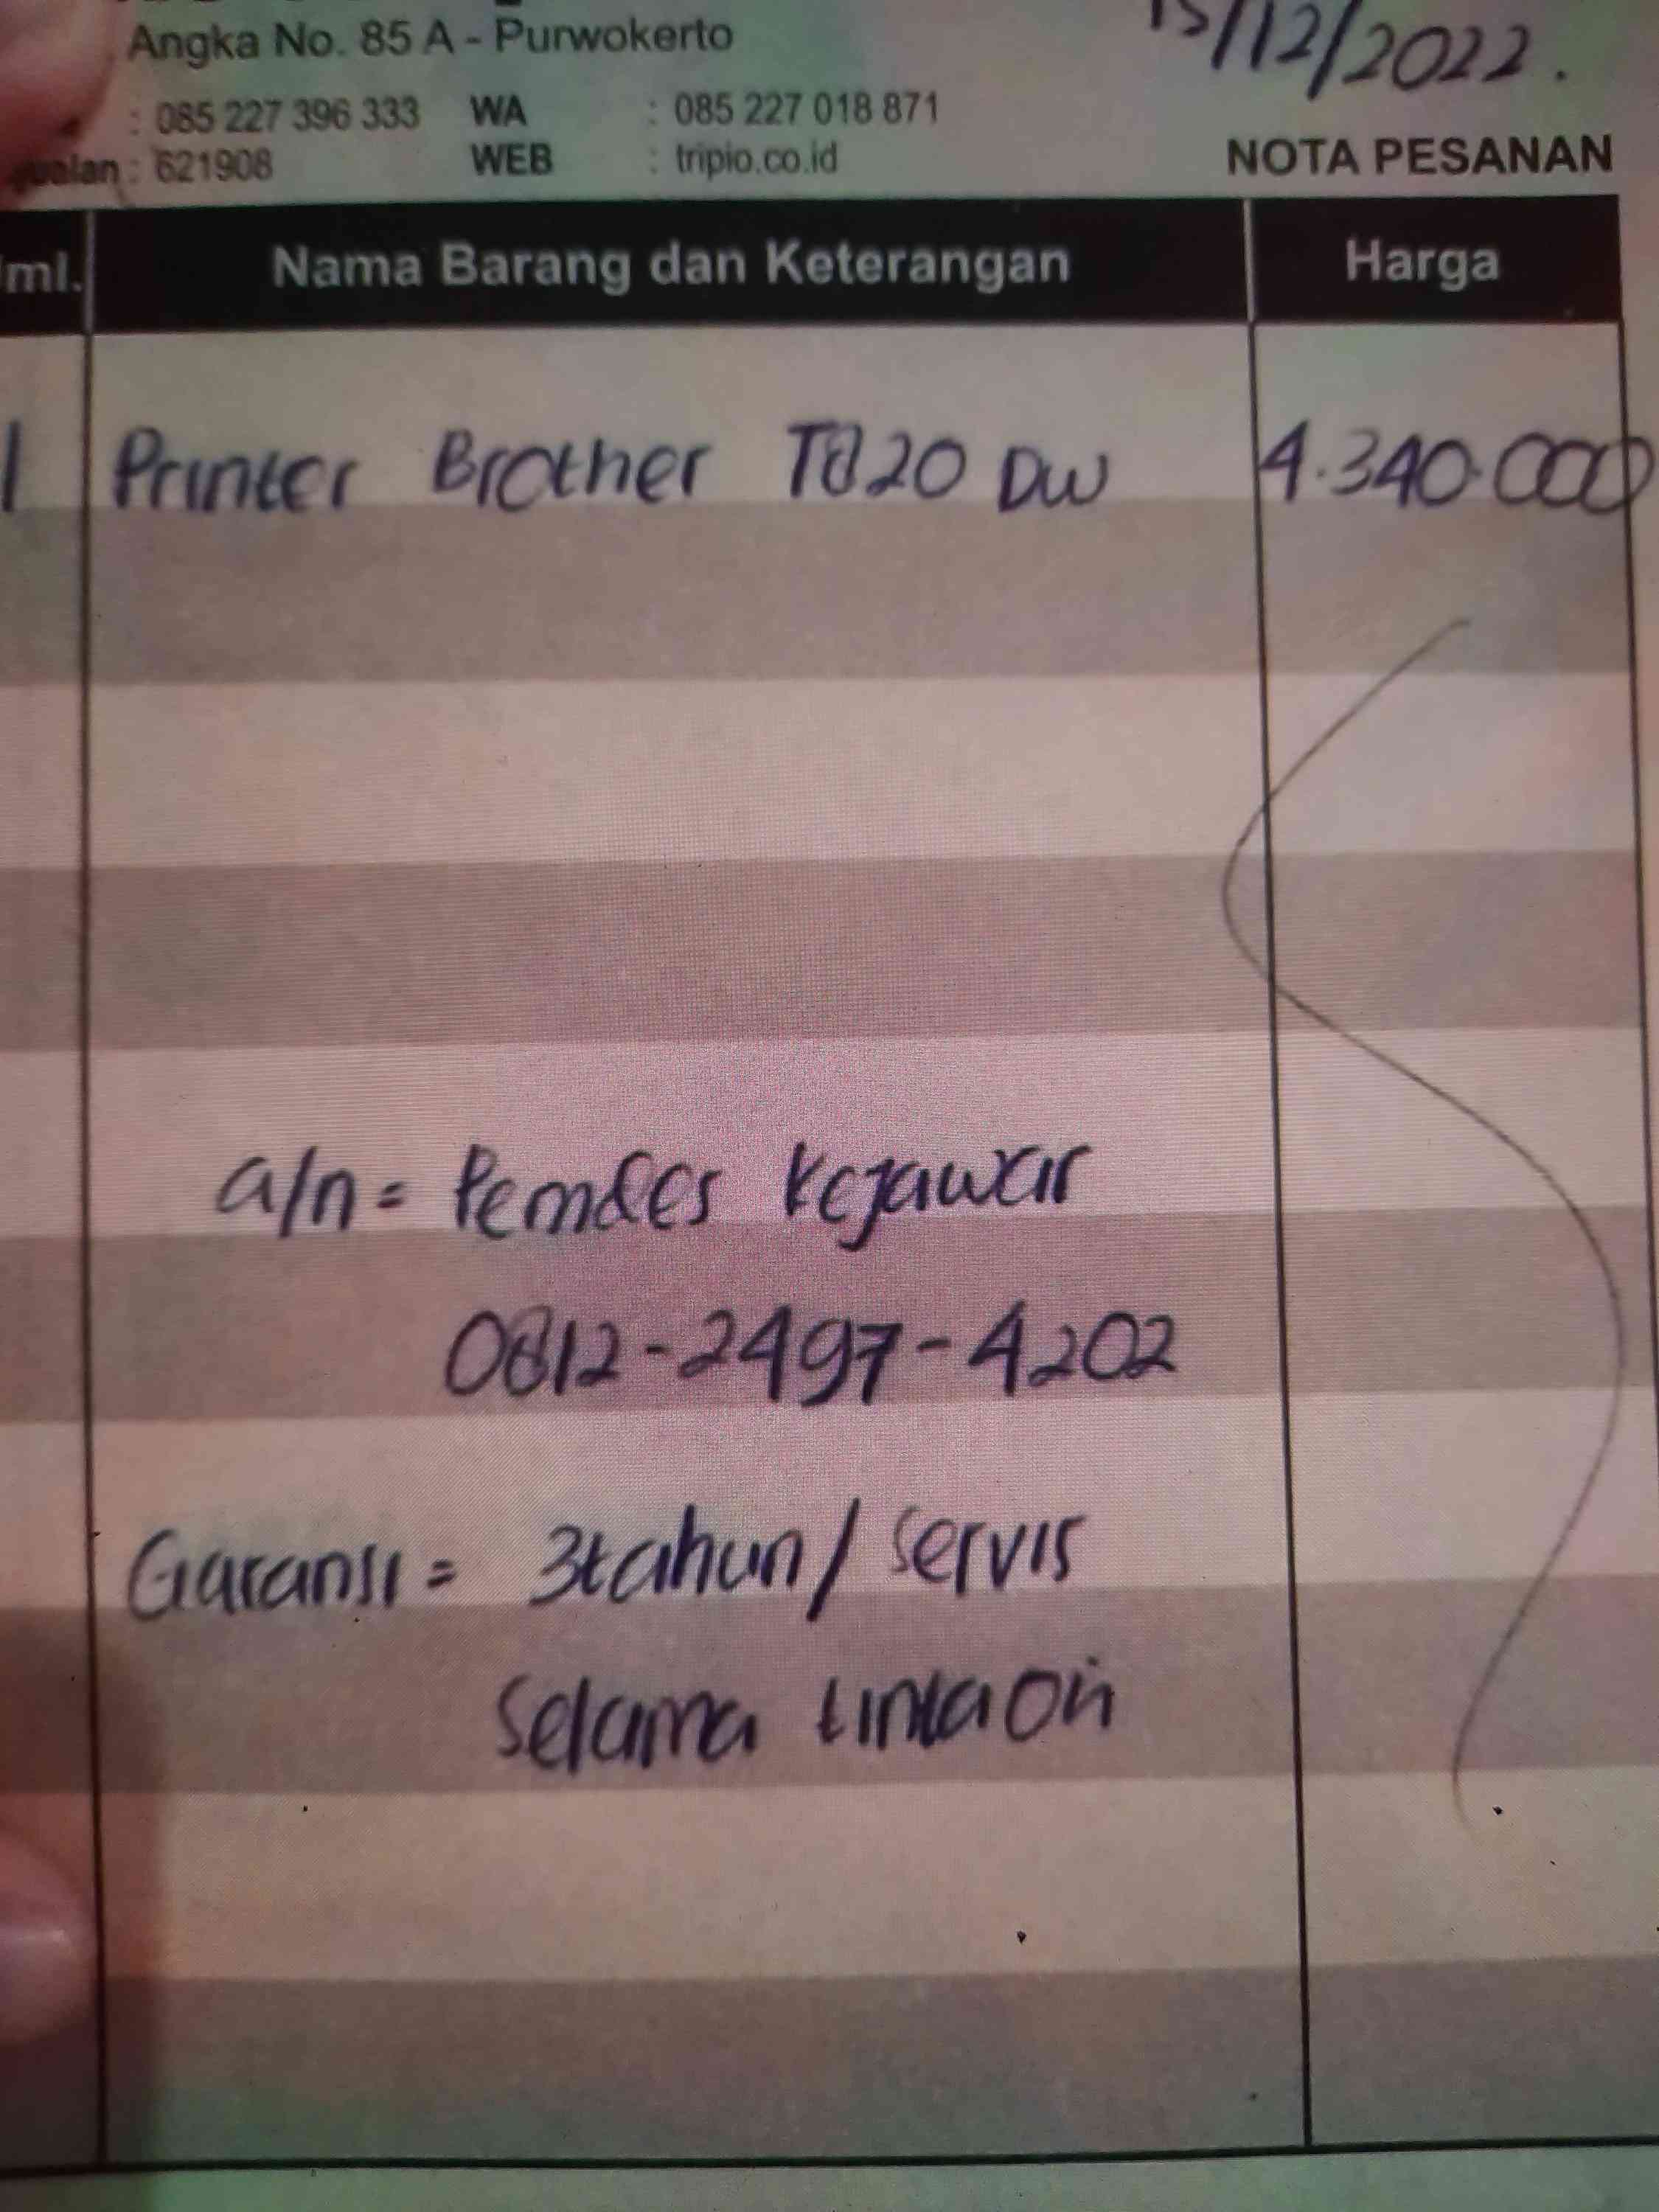 Angka No. 85 A - Purwokerto
15/12/2022.
: 085 227 396 333 WA : 085 227 018 871
: 621908 WEB : tripio.co.id
NOTA PESANAN
ml. Nama Barang dan Keterangan Harga
1 Printer Brother T820 DW 4.340.000
a/n = Pemdes Kejawar
0812-2497-4202
Garansi = 3tahun/servis
selama tinta ori